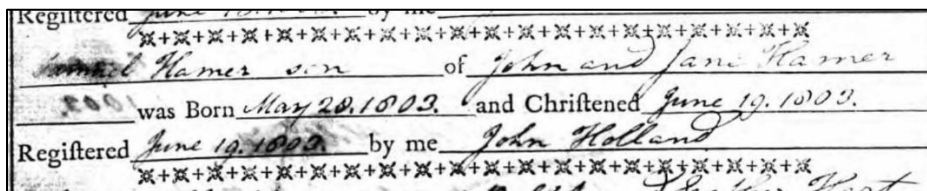 Registered June by me
Samuel Hamer son of John and Jane Hamer
was Born May 28. 1803. and Chriſtened June 19. 1803.
Regiſtered June 19. 1803. by me John Holland